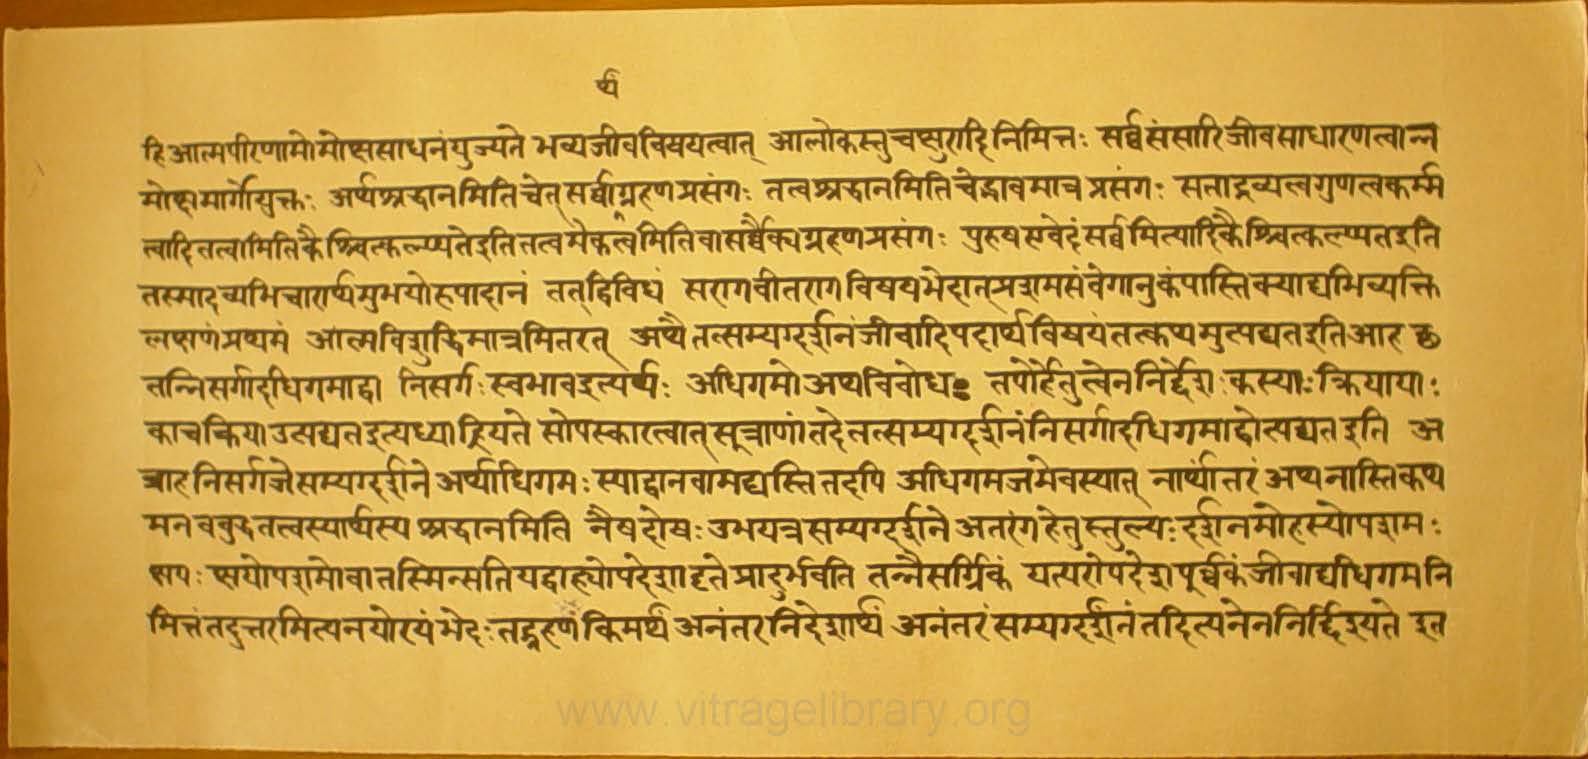 र्थ
हि आत्मपरिणामो मोक्षसाधनं युज्यते भव्यजीवविषयत्वात् आलोकस्तु चक्षुरादिनिमित्तः सर्व्वसंसारिजीवसाधारणत्वान्न
मोक्षमार्गो युक्तः अर्थश्रद्धानमिति चेत् सर्व्वाग्रहणप्रसंगः तत्वश्रद्धानमिति चेद्भावमात्रप्रसंगः सत्ताद्रव्यत्वगुणत्वकर्म्म
त्वादि तत्वामिति कैश्चित्कल्प्यते इति तत्वमेकत्वमिति वा सर्व्वैक्यग्रहणप्रसंगः पुरुष एवेदं सर्व्वमित्यादि कैश्चित्कल्प्यत इति
तस्मादव्यभिचारार्थमुभयोरुपादानं तत् द्विविधं सरागवीतरागविषयभेदात् प्रशमसंवेगानुकंपास्तिक्याद्यभिव्यक्ति
लक्षणं प्रथमं आत्मविशुद्धिमात्रमितरत् अथैतत्सम्यग्दर्शनं जीवादिपदार्थविषयं तत्कथमुत्पद्यत इति आह छ
तन्निसर्गादधिगमाद्वा निसर्गः स्वभाव इत्यर्थः अधिगमो अर्थविबोधः तयोर्हेतुत्वेन निर्द्देशः कस्याः क्रियायाः
का च क्रिया उत्पद्यत इत्यध्याह्रियते सोपस्कारत्वात् सूत्राणां तदेतत्सम्यग्दर्शनं निसर्गादधिगमाद्वोत्पद्यत इति अ
त्राह निसर्गजे सम्यग्दर्शने अर्थाधिगमः स्याद्वा न वा मद्यस्ति तदपि अधिगमजमेव स्यात् नार्थांतरं अथ नास्ति कथ
मनवबुद्धतत्वस्यार्थस्य श्रद्धानमिति नैष दोषः उभयत्र सम्यग्दर्शने अतरंगहेतुस्तुल्यः दर्शनमोहस्योपशमः
क्षयः क्षयोपशमो वा तस्मिन्सति यद्बाह्योपदेशादृते प्रादुर्भवति तन्नैसर्ग्गिकं यत्परोपदेशपूर्व्वकं जीवाद्यधिगमनि
मित्तं तदुत्तरमित्यनयोरयं भेदः तद्ग्रहणं किमर्थं अनंतरनिदेशार्थं अनंतरं सम्यग्दर्शनं तदित्यनेन निर्द्दिश्यते इत
www.vitragelibrary.org